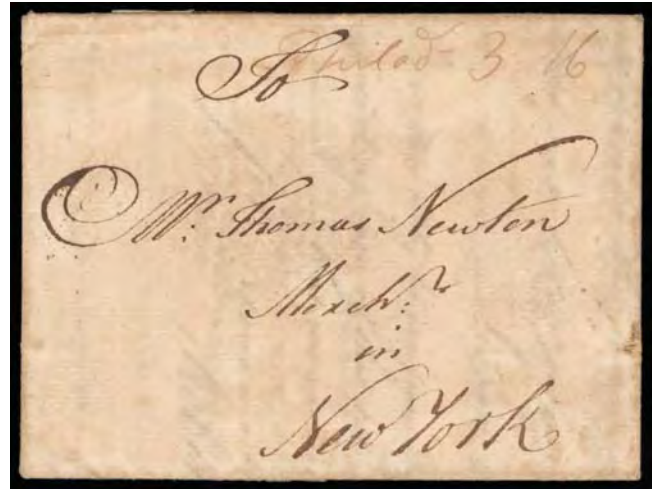 Philad 3 16
To
Mr. Thomas Newton
Mercht.
in
New York